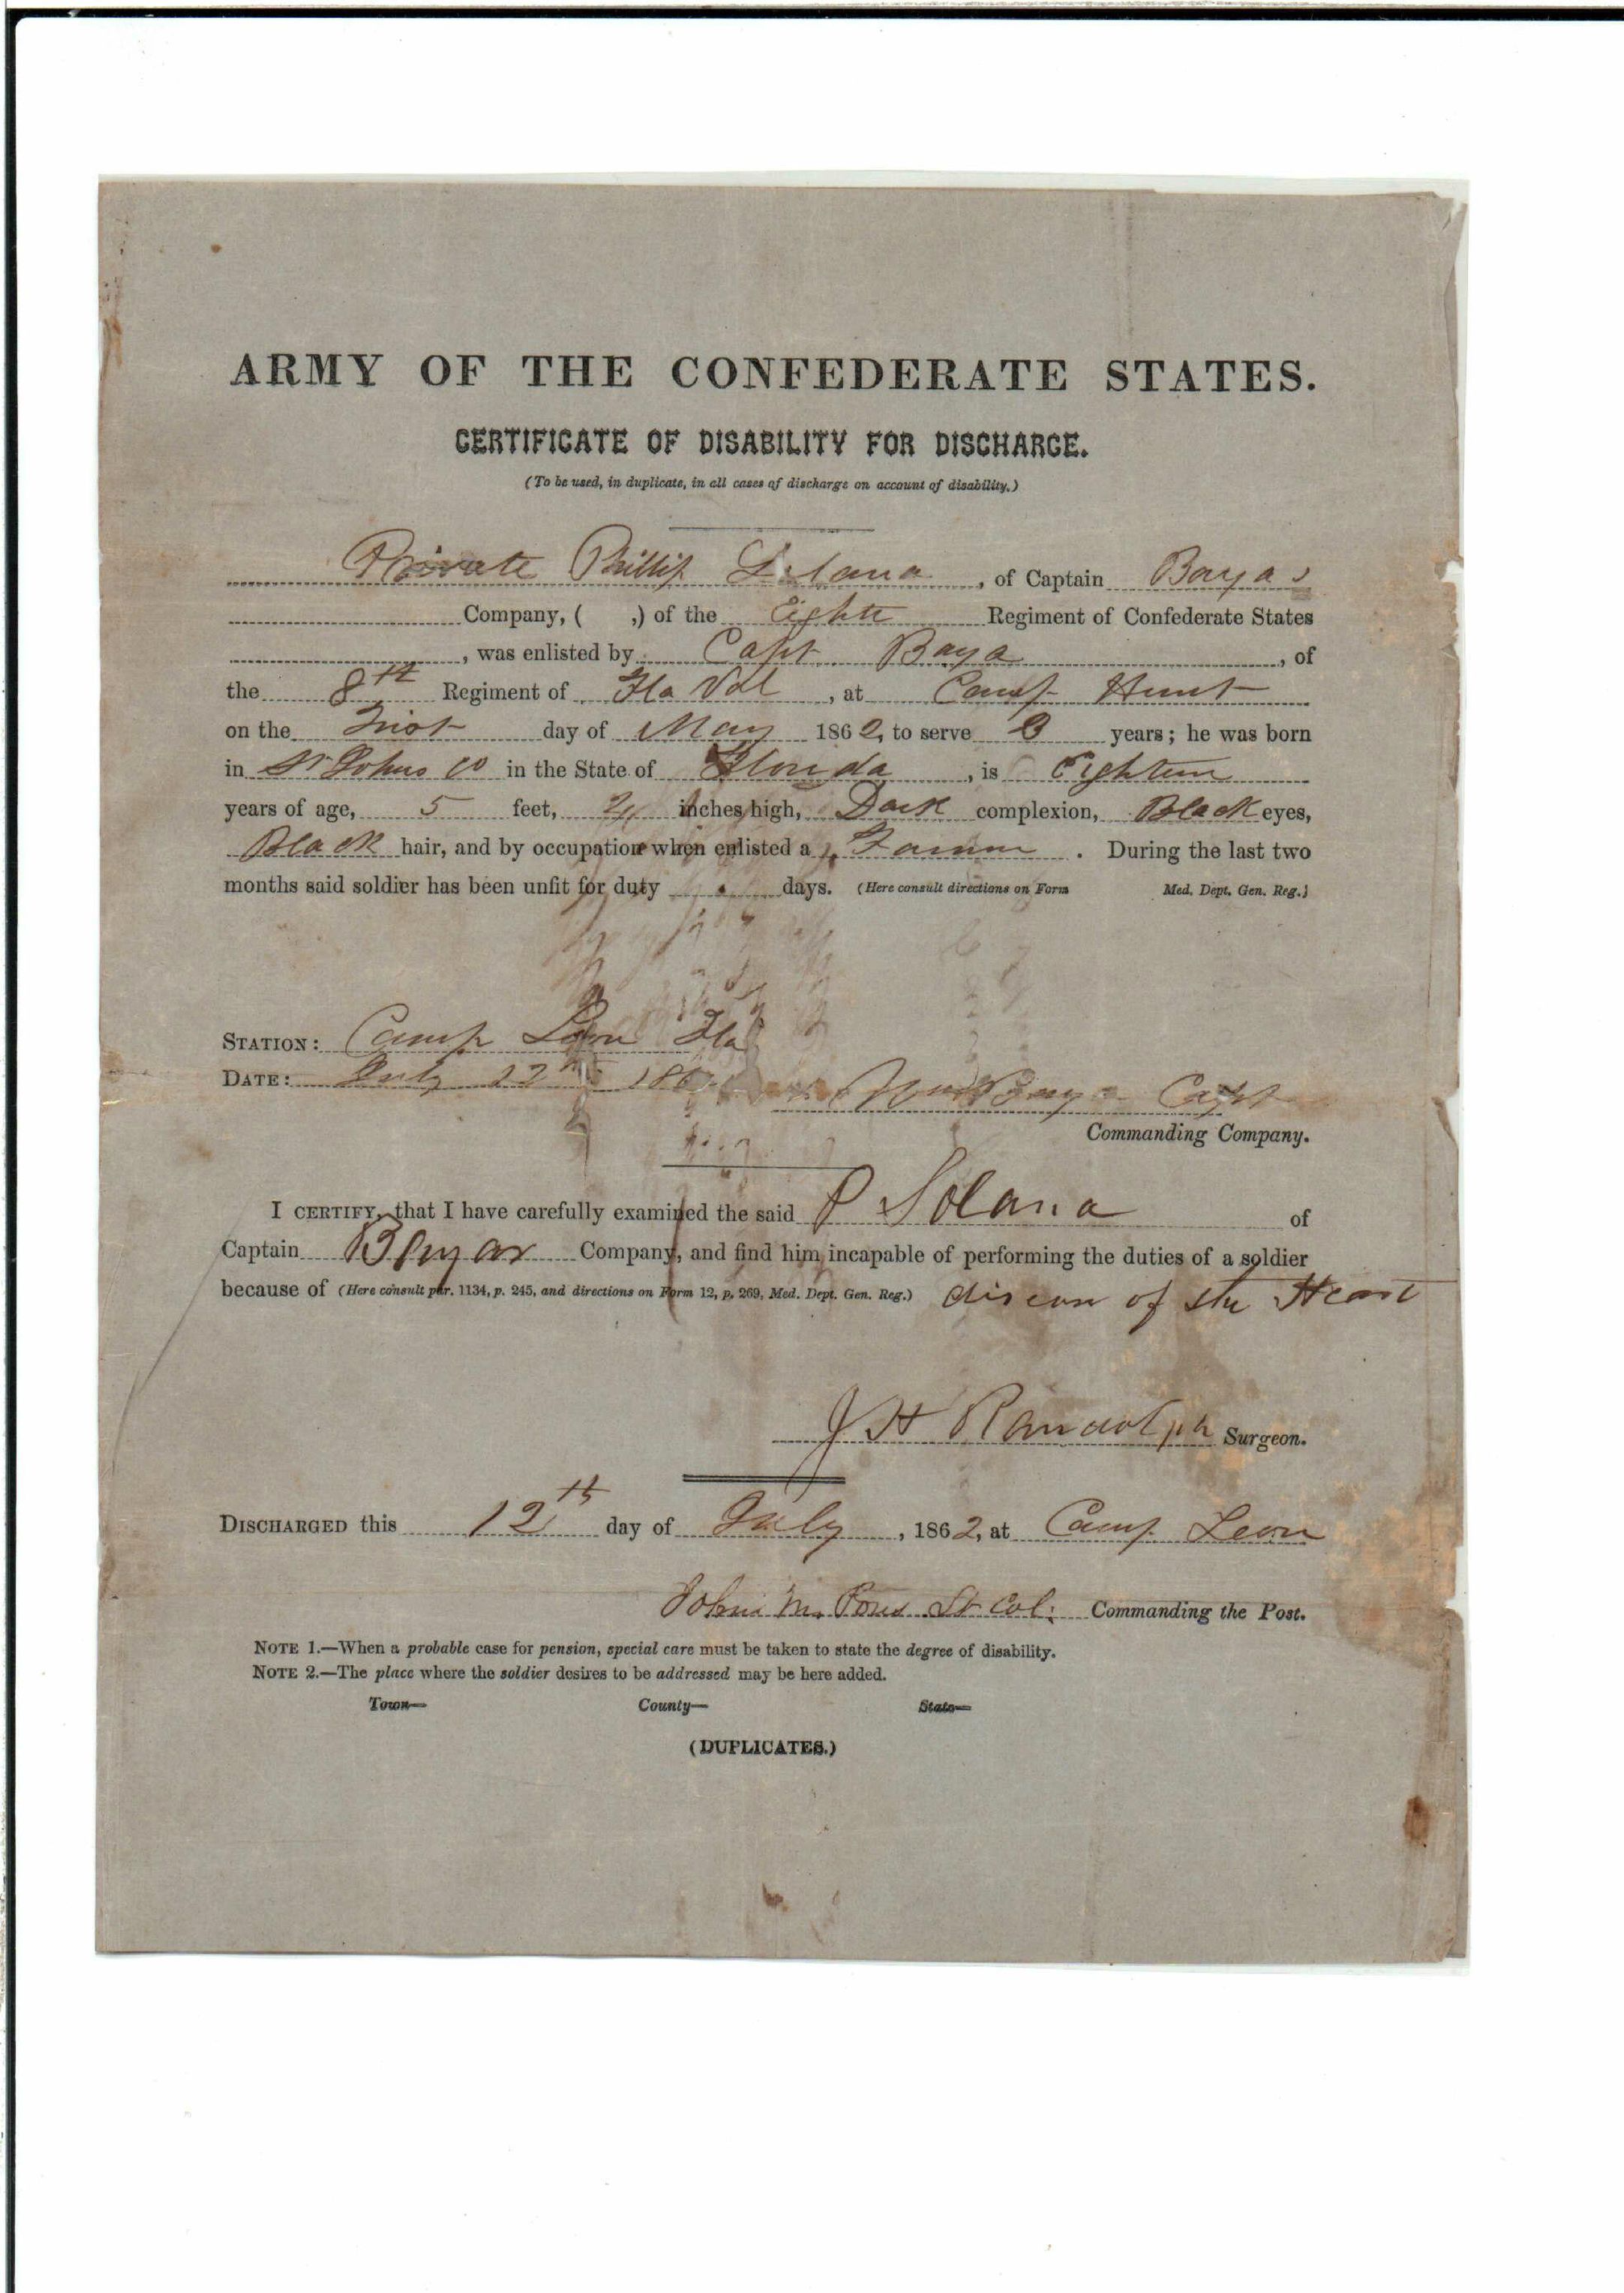 ARMY OF THE CONFEDERATE STATES.
CERTIFICATE OF DISABILITY FOR DISCHARGE.
(To be used, in duplicate, in all cases of discharge on account of disability.)
Private Phillip Solana, of Captain Bayas
Company, ( ,) of the Eighth Regiment of Confederate States
, was enlisted by Capt Baya, of
the 8th Regiment of Fla Vol, at Camp Hunt
on the First day of May 1862, to serve 3 years; he was born
in St Johns Co in the State of Florida, is Eighteen
years of age, 5 feet, inches high, Dark complexion, Black eyes,
Black hair, and by occupation when enlisted a Farmer. During the last two
months said soldier has been unfit for duty days. (Here consult directions on Form Med. Dept. Gen. Reg.)
STATION: Camp Leon Fla
DATE: July 12th 186
Wm Baya Capt
Commanding Company.
I CERTIFY, that I have carefully examined the said P Solana of
Captain Bayas Company, and find him incapable of performing the duties of a soldier
because of (Here consult par. 1134, p. 245, and directions on Form 12, p. 269, Med. Dept. Gen. Reg.) disease of the Heart
J H Randolph Surgeon.
DISCHARGED this 12th day of July, 1862, at Camp Leon
John M. Pons Lt Col. Commanding the Post.
NOTE 1.—When a probable case for pension, special care must be taken to state the degree of disability.
NOTE 2.—The place where the soldier desires to be addressed may be here added.
Town— County— State—
(DUPLICATES.)